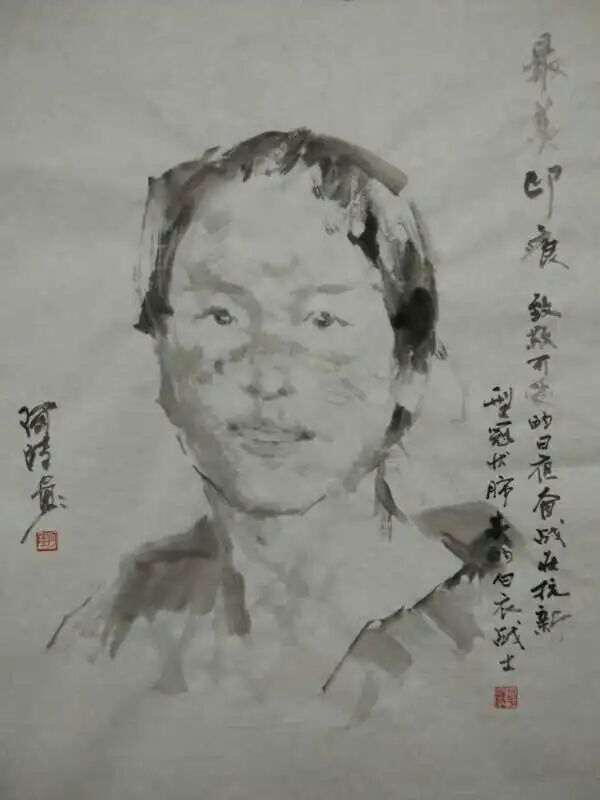 最美印痕 致敬可爱的日夜奋战在抗新
型冠状肺炎的白衣战士
阿晴